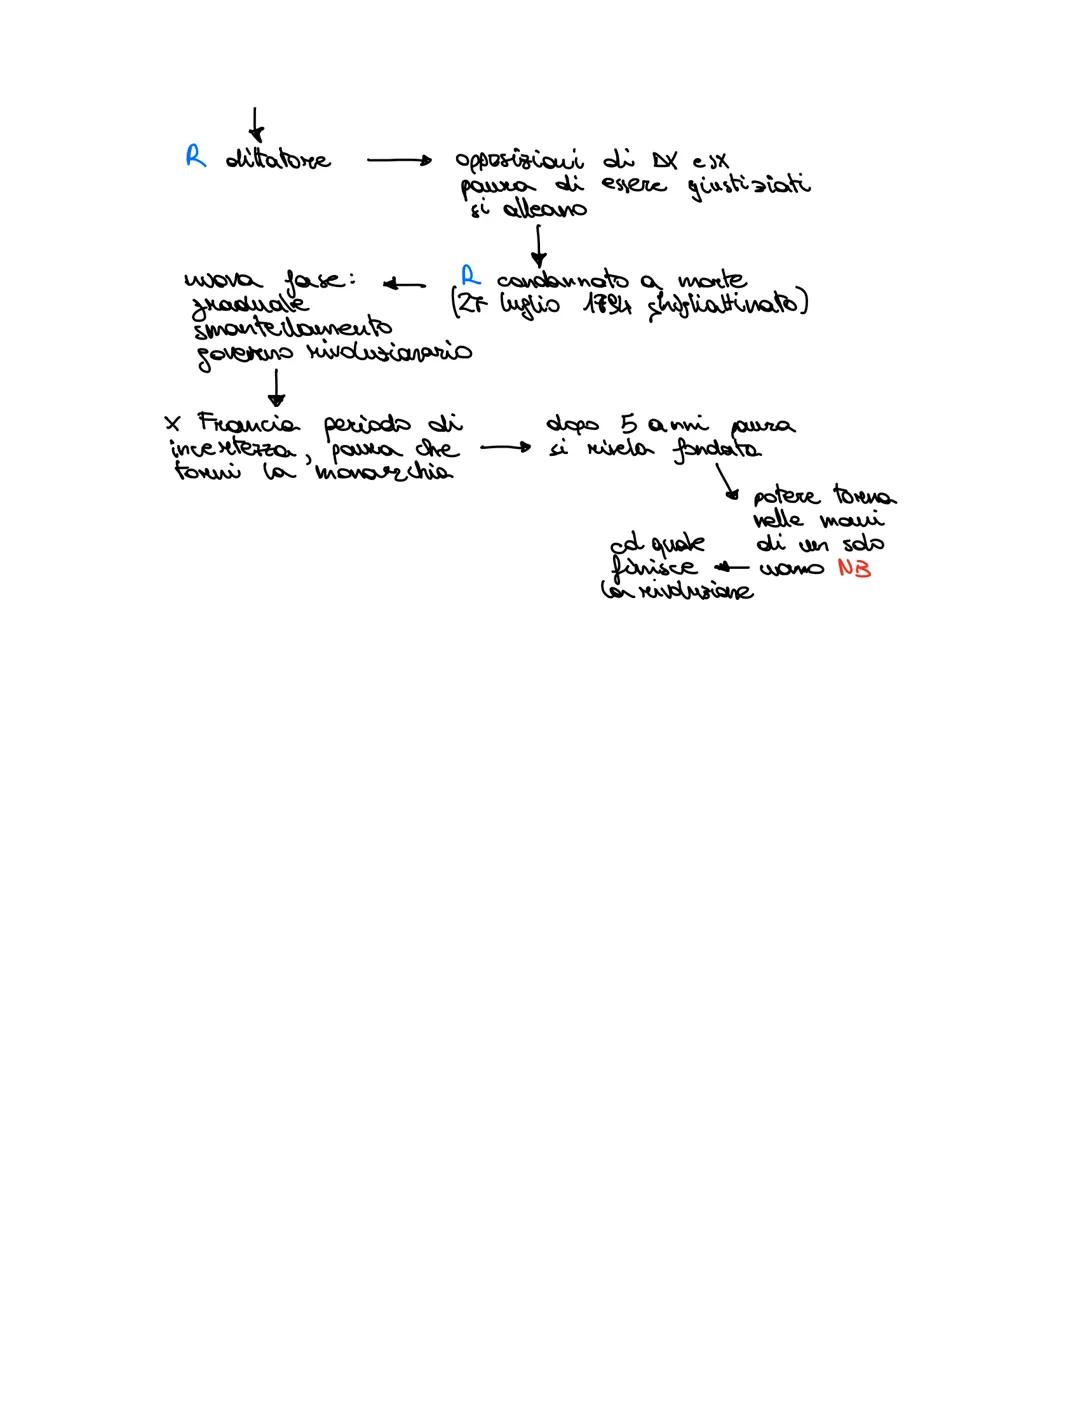 R dittatore → opposizioni di DX e SX
paura di essere giustiziati
si alleano
R condannato a morte
(27 luglio 1794 ghigliottinato)
nuova fase:
graduale
smantellamento
governo rivoluzionario
x Francia periodo di
incertezza, paura che
torni la monarchia
dopo 5 anni paura
si rivela fondata
potere torna
nelle mani
di un solo
uomo NB
col quale
finisce
la rivoluzione